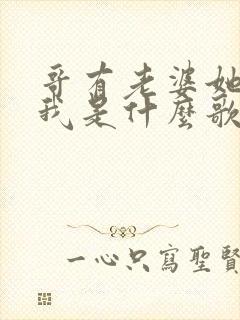 哥有老婆她
我是什麼歌
一心只寫聖賢